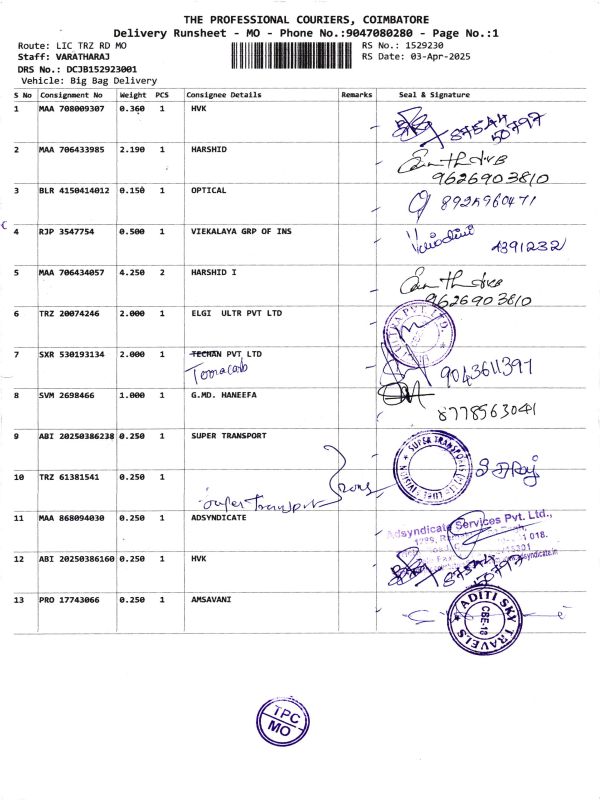 THE PROFESSIONAL COURIERS, COIMBATORE
Delivery Runsheet - MO - Phone No.:9047080280 - Page No.:1
Route: LIC TRZ RD MO RS No.: 1529230
Staff: VARATHARAJ RS Date: 03-Apr-2025
DRS No.: DCJB152923001
Vehicle: Big Bag Delivery
S No Consignment No Weight PCS Consignee Details Remarks Seal & Signature
1 MAA 708009307 0.360 1 HVK 87544
50797
2 MAA 706433985 2.190 1 HARSHID
9626903810
3 BLR 4150414012 0.150 1 OPTICAL 8925960471
4 RJP 3547754 0.500 1 VIEKALAYA GRP OF INS 4391232
5 MAA 706434057 4.250 2 HARSHID I
9626903810
6 TRZ 20074246 2.000 1 ELGI ULTR PVT LTD
7 SXR 530193134 2.000 1 TECHAN PVT LTD 9043611397
8 SVM 2698466 1.000 1 G.MD. HANEEFA
8778563041
9 ABI 20250386238 0.250 1 SUPER TRANSPORT SUPER TRANSPORTS
10 TRZ 61381541 0.250 1
Super Transport
11 MAA 868094030 0.250 1 ADSYNDICATE Adsyndicate Services Pvt. Ltd.,
12 ABI 20250386160 0.250 1 HVK 87544
50797
13 PRO 17743066 0.250 1 AMSAVANI ADITI SKY TRAVELS
CBE-18
TPC
MO